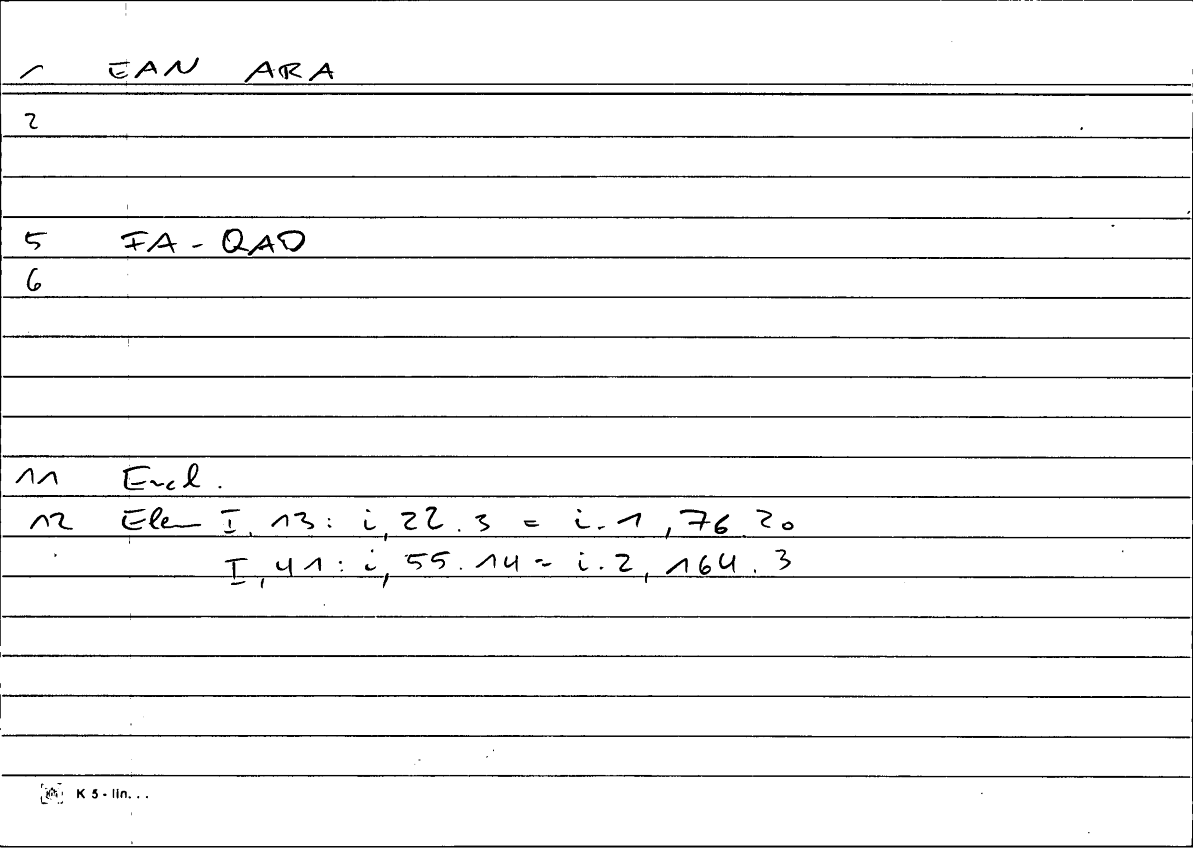 1 EAN ARA
2
5 FA - QAD
6
11 Eucl.
12 Elem I, 13: i, 22.3 = i.1, 76 20
I, 41: i, 55.14 = i.2, 164.3
K 5 - lin. . .